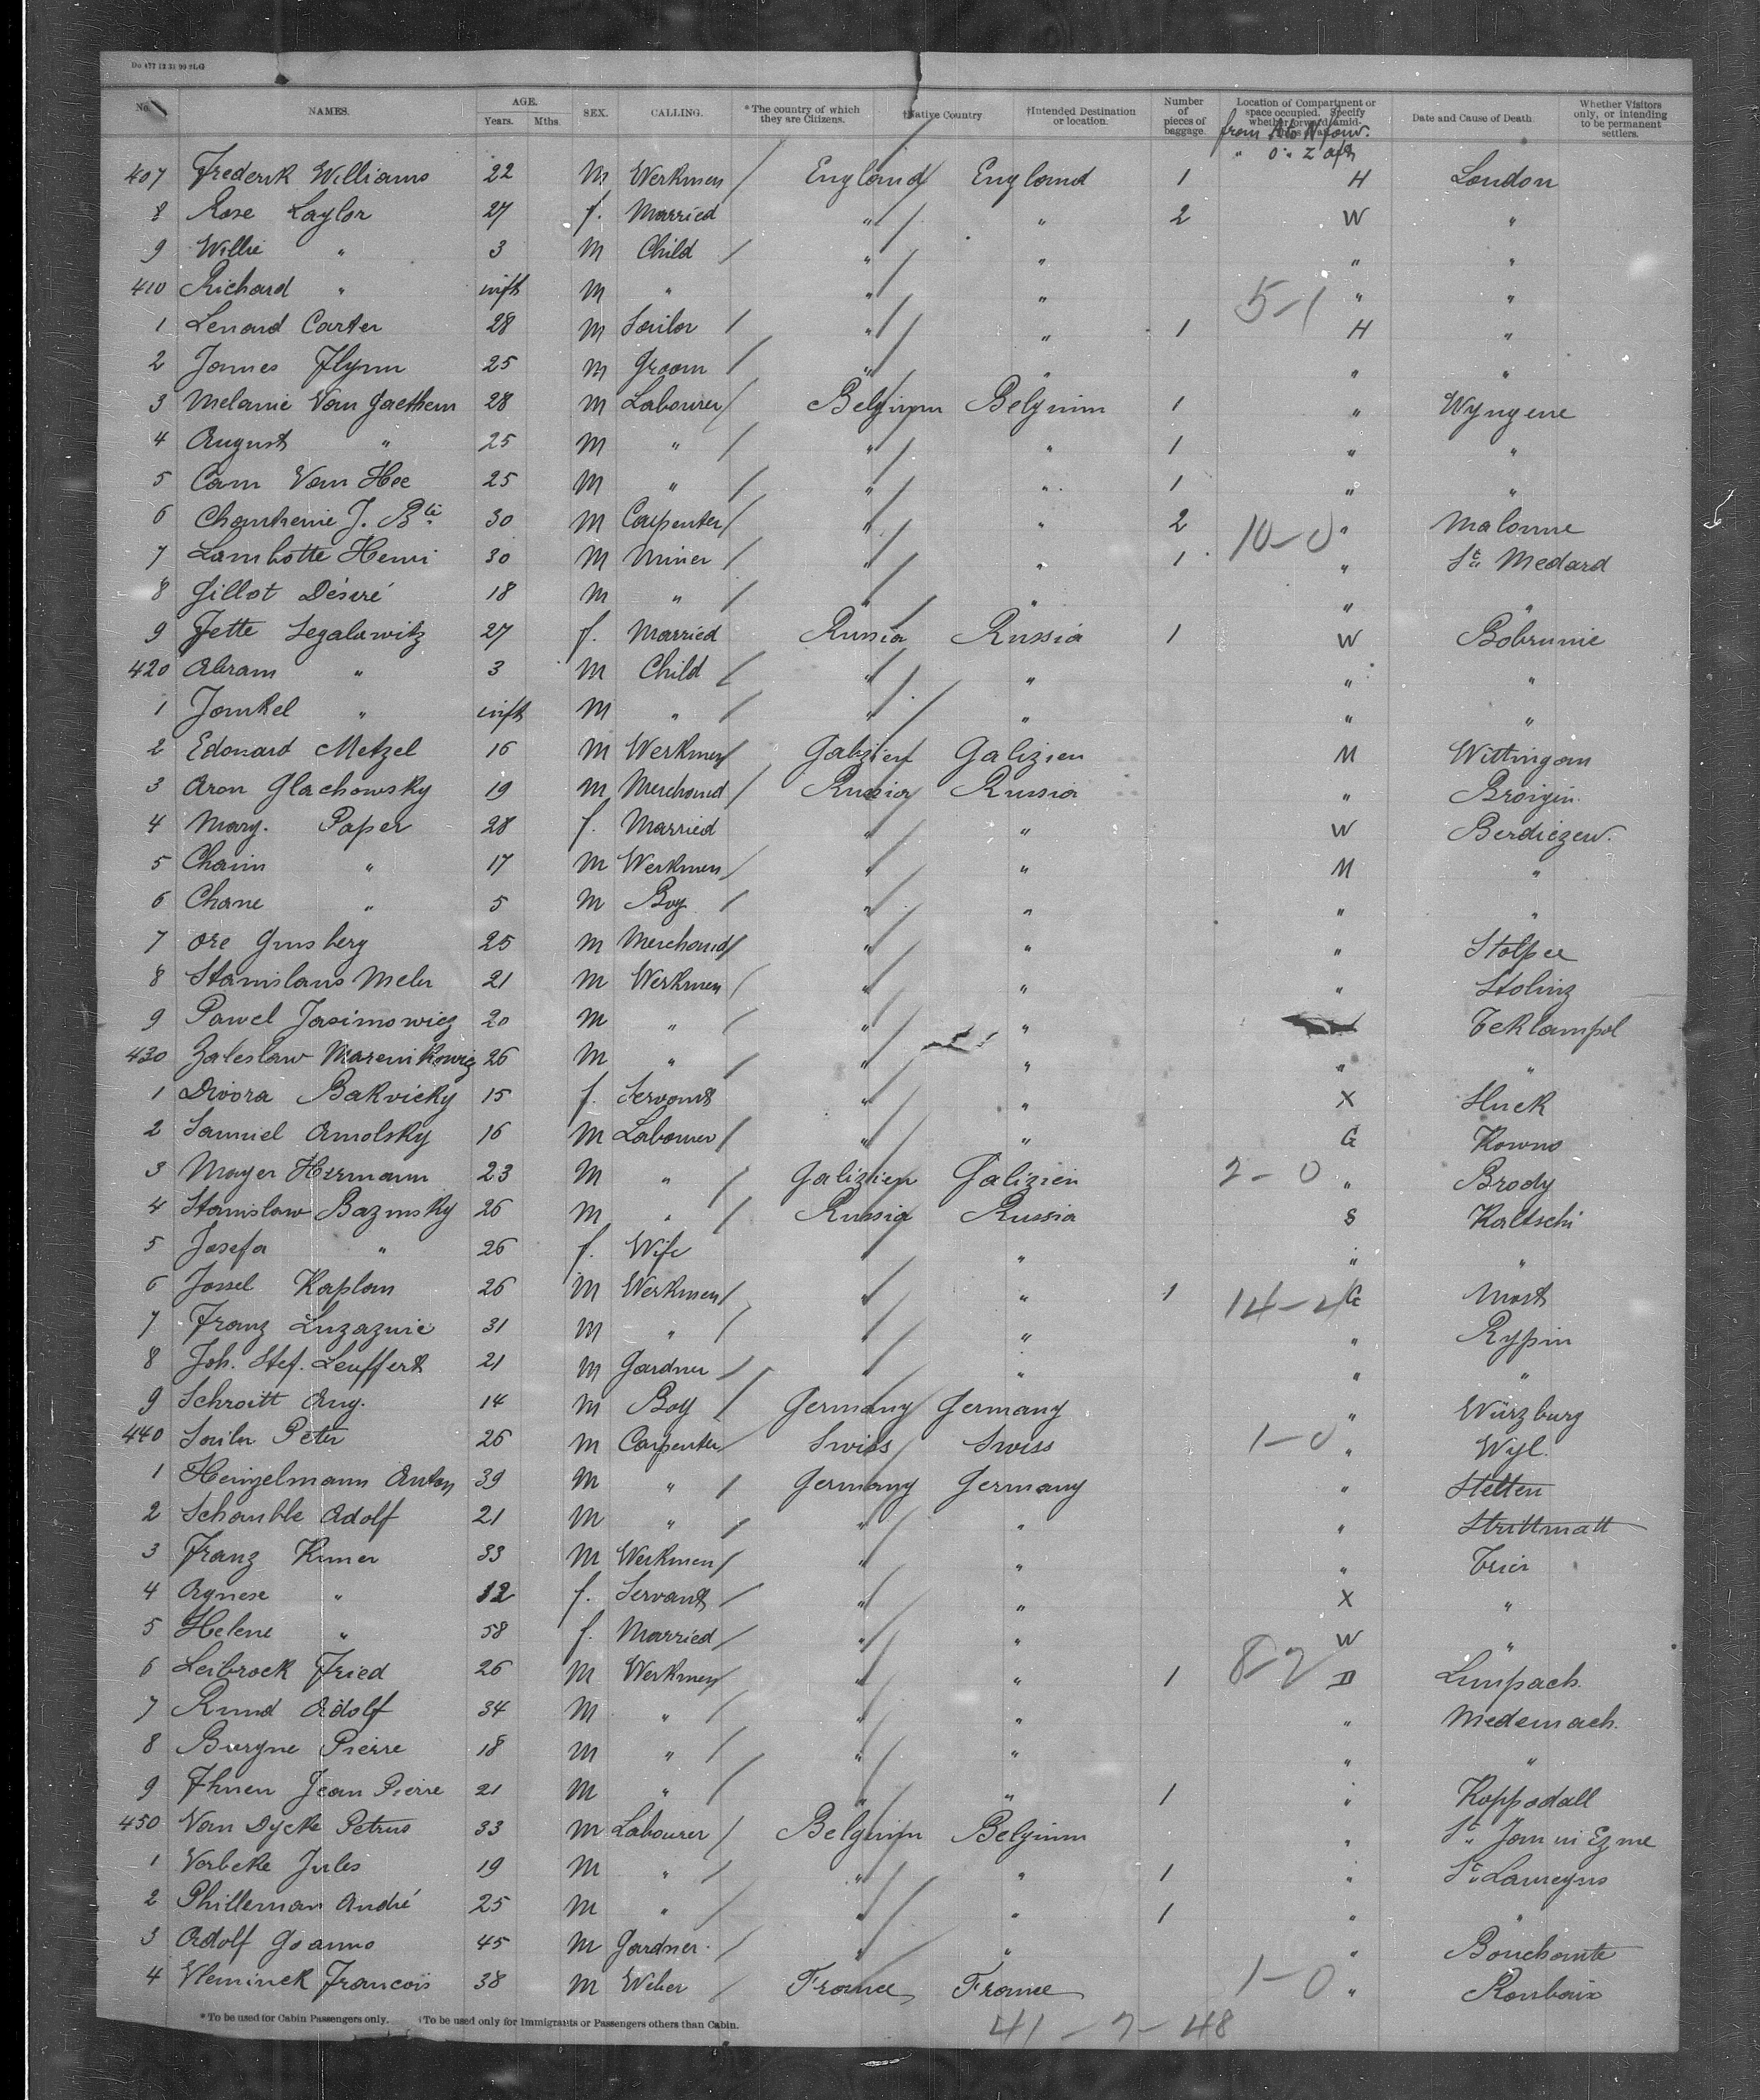 Du 477 12 31 99 SLG
No. NAMES. AGE. Years. Mths. SEX. CALLING. * The country of which they are Citizens. †Native Country †Intended Destination or location. Number of pieces of baggage Location of Compartment or space occupied. Specify whether forward, amid- Date and Cause of Death. Whether Visitors only, or intending to be permanent settlers.
from A to N forw.
" O " Z aft
407 Frederik Williams 22 M Werkmen England England 1 H London
8 Rose Taylor 27 f. Married " " 2 W "
9 Willie " 3 M Child " " " "
410 Richard " inft M " " " " "
5-1
1 Lenard Carter 28 M Sailor " " 1 H "
2 James Flynn 25 M Groom " " " "
3 Melanie Van Gaethem 28 M Labourer Belgium Belgium 1 " Wyngene
4 August " 25 M " " " 1 " "
5 Cam Van Hee 25 M " " " 1 " "
6 J. Bte 30 M Carpenter " " 2 " Malonne
10-0
7 Lambotte Henri 30 M Miner " " 1 " St. Medard
8 Gillot Désiré 18 M " " " " "
9 Jette Segalowitz 27 f. Married Russia Russia 1 W Bobrunie
420 Abram " 3 M Child " " " "
1 Jankel " inft M " " " " "
2 Edouard Metzel 16 M Werkmen Galizien Galizien M Wittingan
3 Aron Glachowsky 19 M Merchand Russia Russia " Broigin
4 Mary. Paper 28 f. Married " " W Berdiezew.
5 Chaim " 17 M Werkmen " " M "
6 Chane " 5 M Boy " " " "
7 Ore Ginsberg 25 M Merchand " " " Stolpce
8 Stanislaus Meler 21 M Werkmen " " " Stolinz
9 Pawel Jasimowicz 20 M " " " Teklampol
430 Zaleslaw 26 M " " " " "
1 Divora Bakvicky 15 f. Servant " " X Sluck
2 Samuel Amolsky 16 M Labourer " " G Kowno
3 Mayer Hermann 23 M " Galizien Galizien " Brody
2-0
4 Stanislaw Bazinsky 26 M " Russia Russia S Kaltschi
5 Josefa " 26 f. Wife " " "
6 Jossel Kaplan 26 M Werkmen " 1 G Most
14-4
7 Franz Luzaznie 31 M " " " Rypin
8 Joh. Stef. Leuffert 21 M Gardner " " "
9 Schroitt Aug. 14 M Boy Germany Germany " Würzburg
440 Sailer Peter 26 M Carpenter Swiss Swiss " Wyl.
1-0
1 Heinzelmann Anton 39 M " Germany Germany " Stetten
2 Schauble Adolf 21 M " " " " Strittmatt
3 Franz Kuner 33 M Werkmen " " " Trier
4 Agnese " 12 f. Servant " " X "
5 Helene " 58 f. Married " " W "
6 Leibrock Fried 26 M Werkmen " " 1 D Limpach.
8-2
7 Rund Adolf 34 M " " " " Medernach.
8 Burgne Pierre 18 M " " " " "
9 Ihnen Jean Pierre 21 M " " " 1 " Koppodall
450 Van Dycke Petrus 33 M Labourer Belgium Belgium " St. Jan in Ezme
1 Verbeke Jules 19 M " " " 1 " St. Laureyns
2 Philleman André 25 M " " " 1 " "
3 Adolf Goanno 45 M Gardner " " " Bouchaute
4 Vleminck Francois 38 M Weber France France " Roubaix
1-0
* To be used for Cabin Passengers only. †To be used only for Immigrants or Passengers others than Cabin.
41-7-48